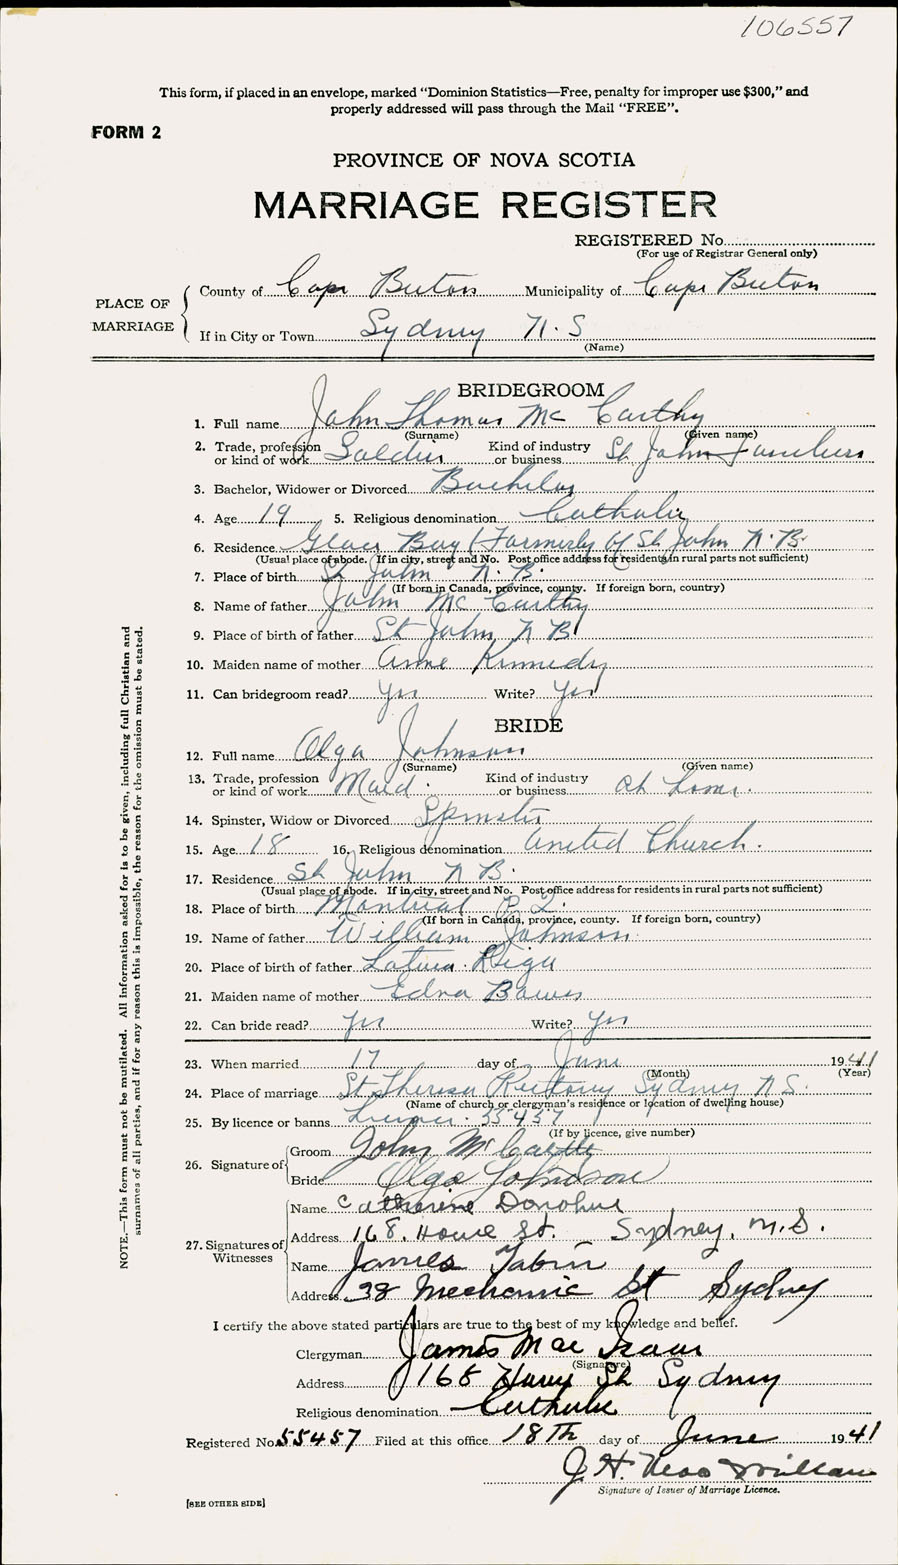 106557
This form, if placed in an envelope, marked “Dominion Statistics—Free, penalty for improper use $300,” and
properly addressed will pass through the Mail “FREE”.
FORM 2
PROVINCE OF NOVA SCOTIA
MARRIAGE REGISTER
REGISTERED No.
(For use of Registrar General only)
PLACE OF MARRIAGE
County of Cape Breton Municipality of Cape Breton
If in City or Town Sydney N.S
(Name)
BRIDEGROOM
1. Full name John Thomas Mc Carthy
(Surname) (Given name)
2. Trade, profession or kind of work Soldier Kind of industry or business St John Fusiliers
3. Bachelor, Widower or Divorced Bachelor
4. Age 19 5. Religious denomination Catholic
6. Residence Glace Bay (Formerly of St John N.B.
(Usual place of abode. If in city, street and No. Post office address for residents in rural parts not sufficient)
7. Place of birth St John N.B.
(If born in Canada, province, county. If foreign born, country)
8. Name of father John Mc Carthy
9. Place of birth of father St John N B
10. Maiden name of mother Anne Kennedy
11. Can bridegroom read? yes Write? yes
BRIDE
12. Full name Olga Johnson
(Surname) (Given name)
13. Trade, profession or kind of work Maid. Kind of industry or business at home.
14. Spinster, Widow or Divorced Spinster
15. Age 18 16. Religious denomination United Church.
17. Residence St John N B.
(Usual place of abode. If in city, street and No. Post office address for residents in rural parts not sufficient)
18. Place of birth Montreal P.Q.
(If born in Canada, province, county. If foreign born, country)
19. Name of father William Johnson
20. Place of birth of father Latvia Riga
21. Maiden name of mother Edna
22. Can bride read? yes Write? yes
23. When married 17 day of June 1941
(Month) (Year)
24. Place of marriage St. Theresa Rectory Sydney N.S.
(Name of church or clergyman's residence or location of dwelling house)
25. By licence or banns License. 55457
(If by licence, give number)
26. Signature of
Groom John McCarthy
Bride Olga Johnson
27. Signatures of Witnesses
Name Catherine Donohue
Address 168. St. Sydney, N.S.
Name James Tobin
Address 38 Mechanic St Sydney
I certify the above stated particulars are true to the best of my knowledge and belief.
Clergyman James Mac Isaac
(Signature)
Address 168 St Sydney
Religious denomination Catholic
Registered No. 55457 Filed at this office 18th day of June 1941
J. H.
Signature of Issuer of Marriage Licence.
[SEE OTHER SIDE]
NOTE.—This form must not be mutilated. All information asked for is to be given, including full Christian and
surnames of all parties, and if for any reason this is impossible, the reason for the omission must be stated.